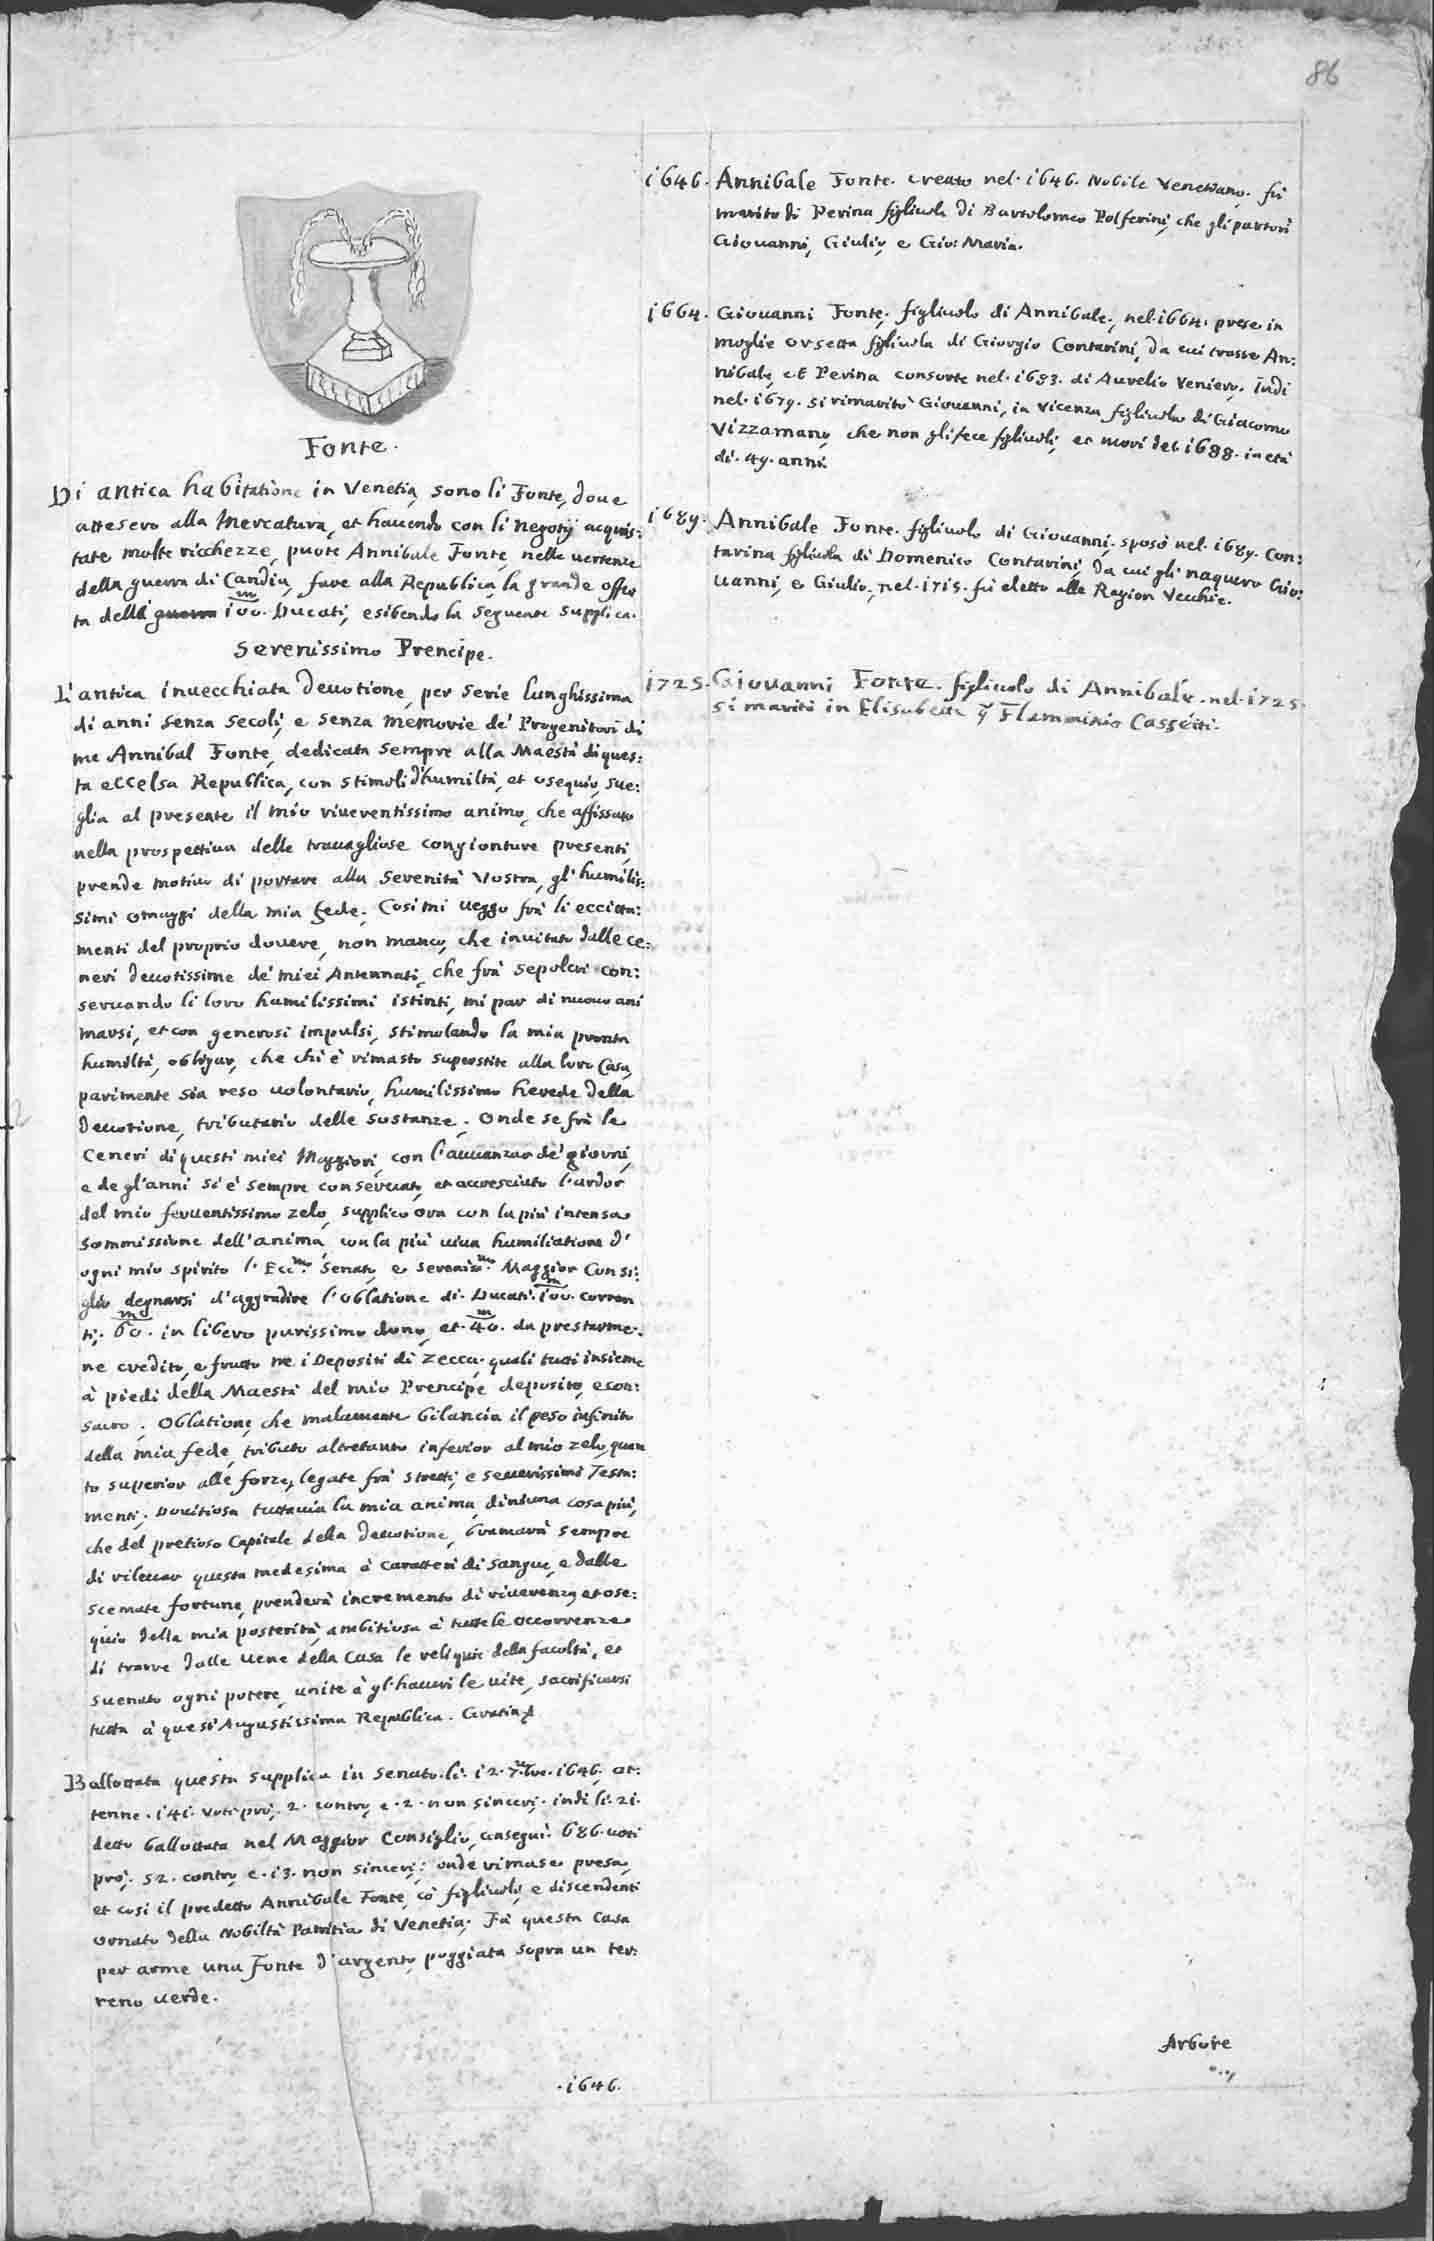 86
Fonte.
Di antica habitatione in Venetia, sono li Fonte, doue
attesero alla Mercatura, et hauendo con li negotij acquis:
tate molte ricchezze, puotè Annibale Fonte, nelle uertenze
della guerra di Candia, fare alla Republica, la grande offer
ta delli guerra 100. m Ducati, esibendo la seguente supplica.
Serenissimo Prencipe.
L'antica inuecchiata deuotione, per serie lunghissima
di anni senza secoli, e senza memorie de' Progenitori di
me Annibal Fonte, dedicata sempre alla Maestà di ques:
ta eccelsa Republica, con stimoli d'humiltà, et osequio, sue:
glia al presente il mio riuerentissimo animo, che affissato
nella prospettiua delle trauagliose congionture presenti,
prende motiuo di portare alla Serenità Vostra, gl'humilis:
simi omaggi della mia fede. Cosi mi ueggo frà li eccitta:
menti del proprio douere, non manco, che inuitato dalle ce:
neri deuotissime de' miei Antennati, che frà sepolcri con:
seruando li loro humilissimi istinti, mi par di nuouo ani
marsi, et con generosi impulsi, stimolando la mia pronta
humiltà, obligar, che chi è rimasto superstite alla loro Casa,
parimente sia reso uolontario, humilissimo herede della
deuotione, tributario delle sostanze. Onde se frà le
Ceneri di questi miei Maggiori, con l'auuanzar de' giorni,
e de gl'anni si è sempre conseruato, et accresciuto l'ardor
del mio feruentissimo zelo, supplico ora con la più intensa
sommissione dell'anima, con la più uiua humiliatione d'
ogni mio spirito l'Ecc.mo Senato, e Sereniss.mo Maggior Consi:
glio degnarsi d'aggradire l'oblatione di Ducati 100. m corren
ti; 60. m in libero purissimo dono, et 40. m da prestarme:
ne credito, e frutto ne i Depositi di Zecca, quali tutti insieme
à piedi della Maestà del mio Prencipe deposito, e con:
sacro. Oblatione, che malamente bilancia il peso infinito
della mia fede, tributo altretanto inferior al mio zelo, quan
to superior alle forze, legate frà stretti, e seuerissimi Testa:
menti. Douitiosa tuttauia la mia anima, di niuna cosa più,
che del pretioso Capitale della deuotione, bramarà sempre
di rileuar questa medesima à caratteri di sangue, e dalle
scemate fortune, prenderà incremento di riuerenza, et ose:
quio della mia posterità, ambitiosa à tutte le occorrenze
di trarre dalle uene della Casa le reliquie della facoltà, et
suenato ogni potere, unite à gl'haueri le uite, sacrificarsi
tutta à quest'Augustissima Republica. Gratia
Ballottata questa supplica in Senato li 12. 7.bre 1646. ot:
tenne 141. voti prò, 2. contro, e 2. non sinceri, indi li 21.
detto ballottata nel Maggior Consiglio, conseguì 686. uoti
prò, 52. contro, e 13. non sinceri; onde rimase presa,
et cosi il predetto Annibale Fonte, co' figliuoli, e discendenti
ornato della Nobiltà Patritia di Venetia. Fà questa Casa
per arme una Fonte d'argento, poggiata sopra un ter:
reno uerde.
1646.
1646. Annibale Fonte. creato nel 1646. Nobile Venetiano, fù
marito di Perina figliuola di Bartolomeo Polferini, che gli partorì
Giouanni, Giulio, e Gio: Maria.
1664. Giouanni Fonte, figliuolo di Annibale, nel 1664. prese in
moglie Orsetta figliuola di Giorgio Contarini, da cui trasse An:
nibale, et Perina consorte nel 1683. di Aurelio Venier. Indi
nel 1679. si rimaritò Giouanni, in Vicenza figliuola di Giacomo
Vizzamano, che non gli fece figliuoli, et morì del 1688. in età
di 49. anni.
1689. Annibale Fonte. figliuolo di Giouanni, sposò nel 1689. Con:
tarina figliuola di Domenico Contarini, da cui gli naquero Gio:
uanni, e Giulio, nel 1715. fù eletto alle Rason Vecchie.
1725. Giouanni Fonte. figliuolo di Annibale nel 1725.
si maritò in Elisabetta q. Flamminio Cassetti.
Arbore